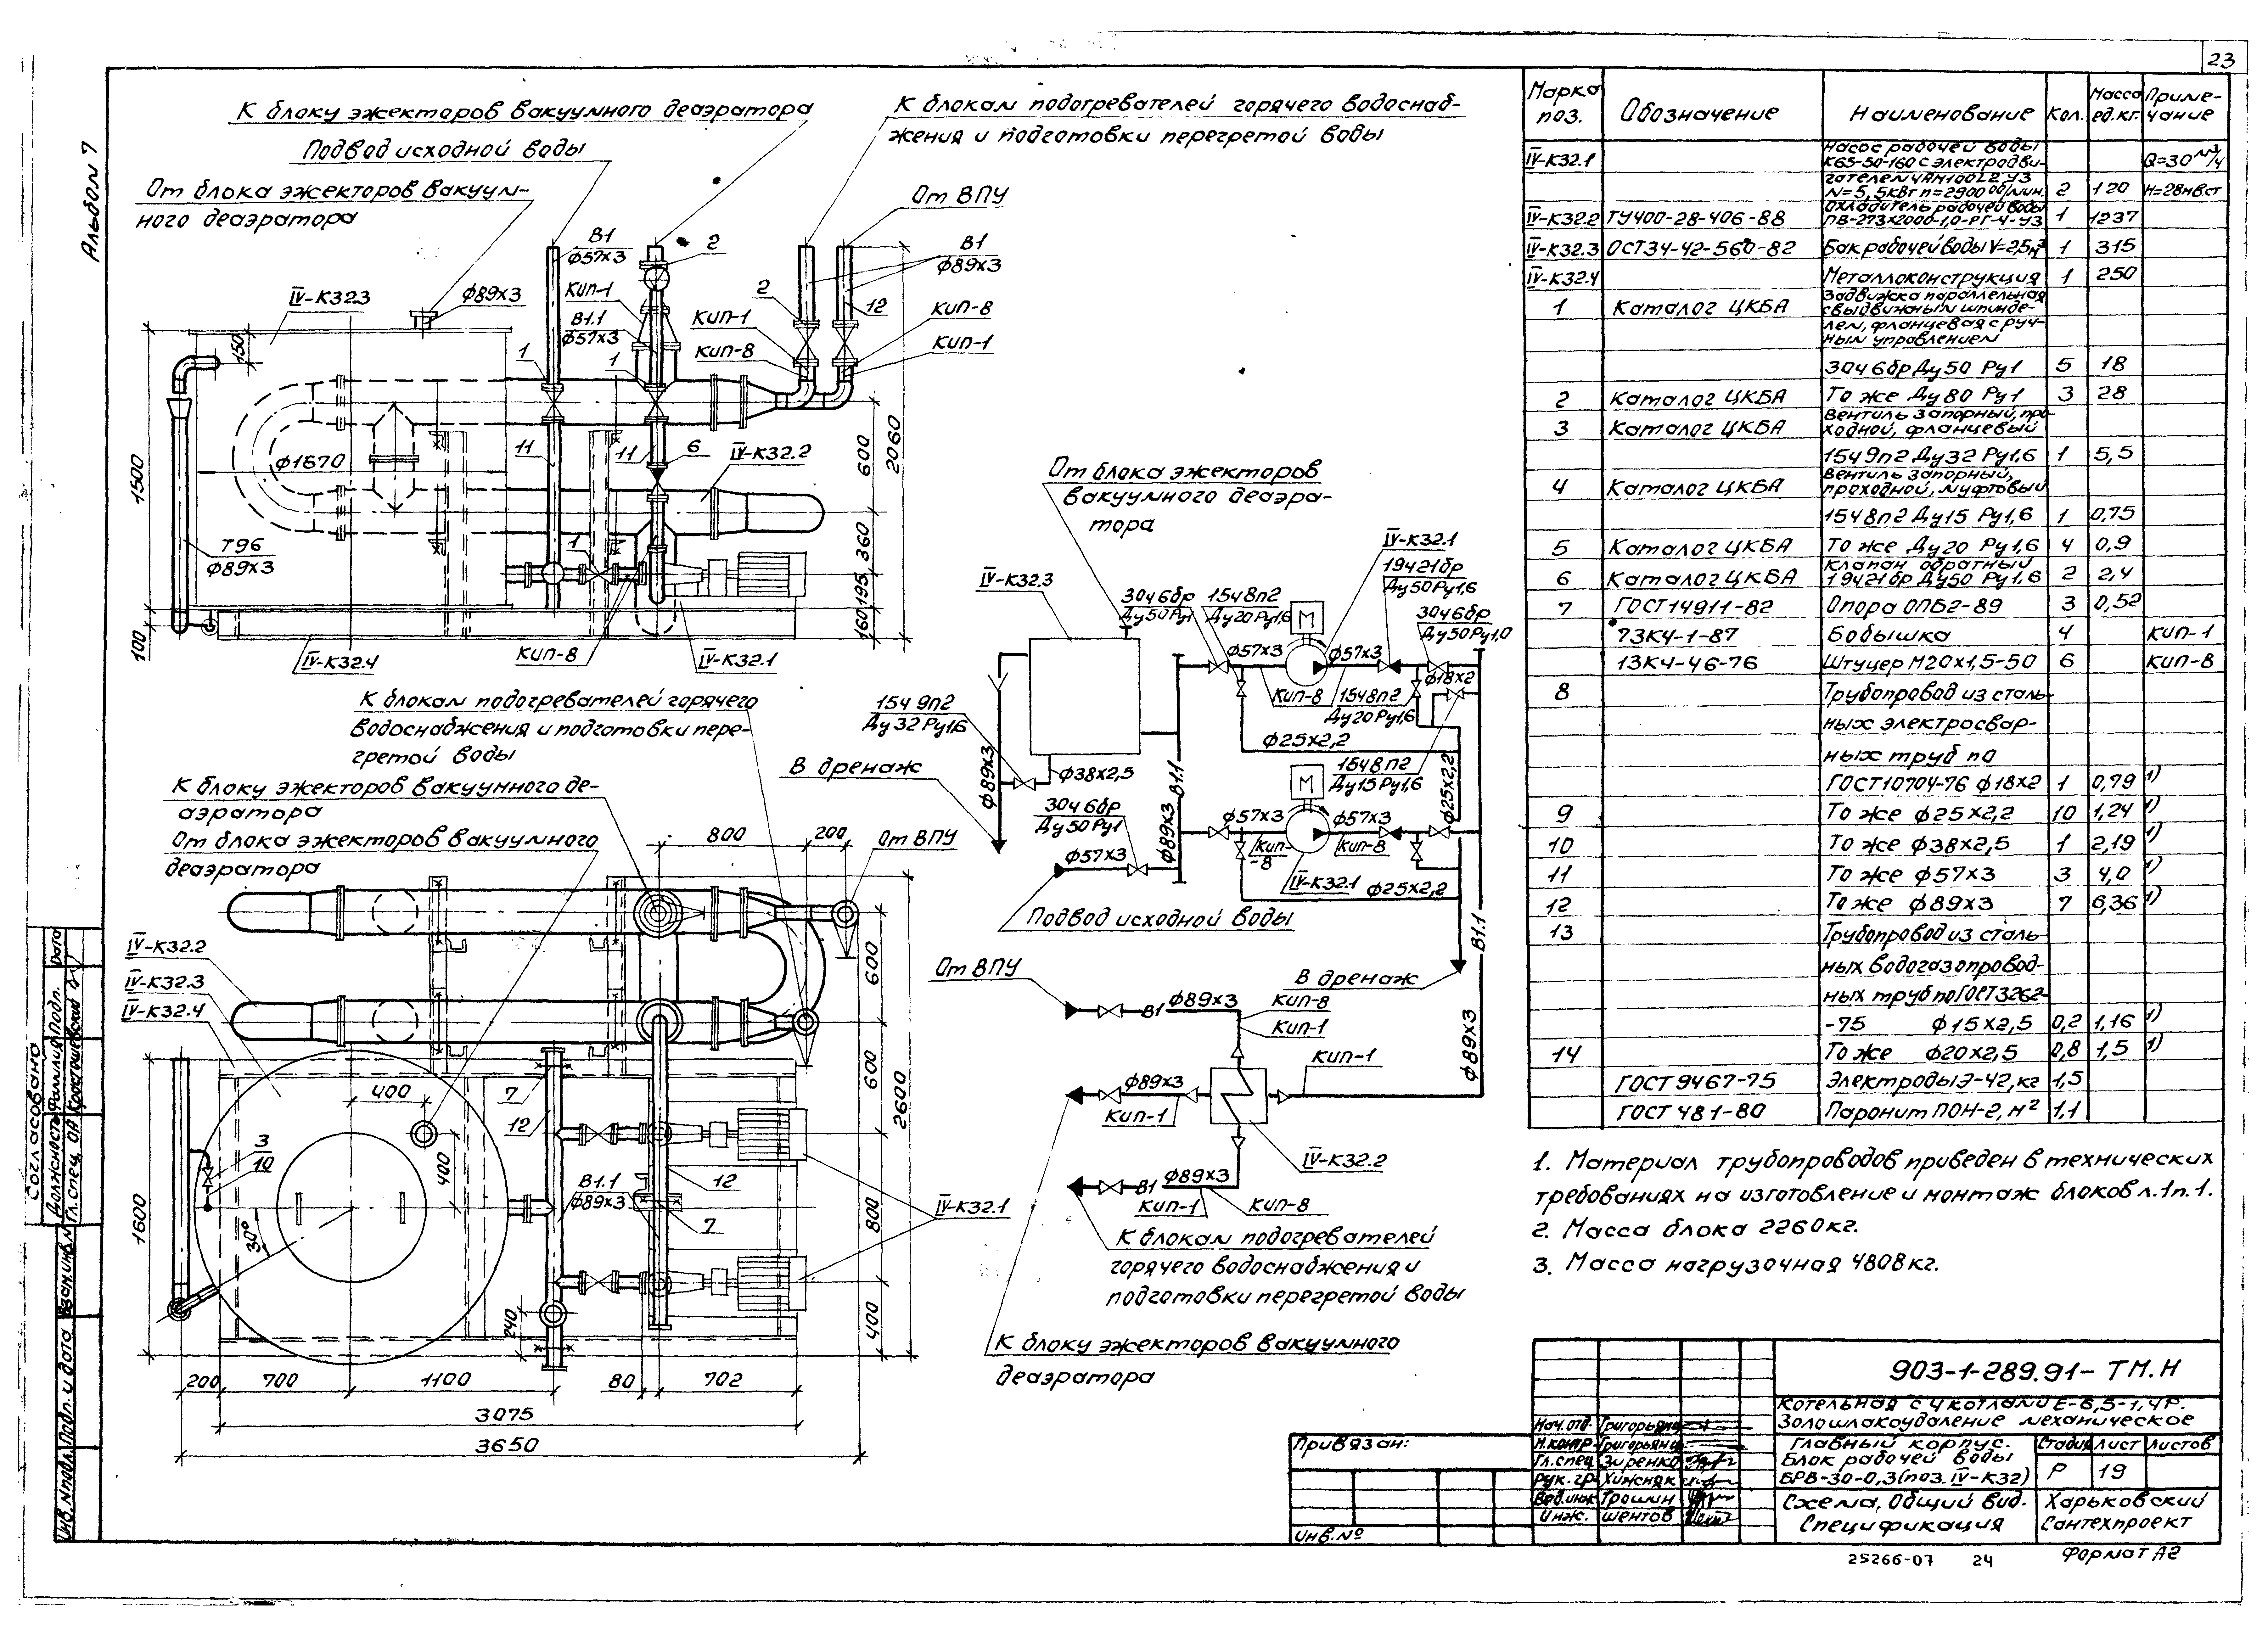 23
Альбом 7
К блоку эжекторов вакуумного деаэратора
Подвод исходной воды
От блока эжекторов вакуум-
ного деаэратора
К блокам подогревателей горячего водоснаб-
жения и подготовки перегретой воды
От ВПУ
В1
ф57х3
2
В1
ф89х3
IV-К32.3
ф89х3
КИП-1
В1.1
ф57х3
2
КИП-1
КИП-8
12
КИП-8
КИП-1
150
1
1
1500
ф1670
11
11
6
IV-К32.2
600
2060
Т96
ф89х3
1
360
195
160
100
IV-К32.4
КИП-8
IV-К32.1
К блокам подогревателей горячего
водоснабжения и подготовки пере-
гретой воды
К блоку эжекторов вакуумного де-
аэратора
От блока эжекторов вакуумного
деаэратора
800
200
От ВПУ
IV-К32.2
IV-К32.3
IV-К32.4
600
600
2600
400
7
12
3
10
400
В1.1
ф89х3
12
7
IV-К32.1
800
1600
30°
240
400
200
700
1100
80
702
3075
3650
От блока эжекторов
вакуумного деаэра-
тора
IV-К32.3
IV-К32.1
30ч6бр
Ду50Ру1
15ч8п2
Ду20Ру1,6
М
19ч21бр
Ду50Ру1,6
30ч6бр
Ду50Ру1,0
ф57х3
ф57х3
КИП-8
15ч8п2
Ду20Ру1,6
ф18х2
15ч9п2
Ду32Ру1,6
В дренаж
ф89х3
ф38х2,5
В1.1
ф25х2,2
М
15ч8п2
Ду15Ру1,6
ф25х2,2
30ч6бр
Ду50Ру1
ф57х3
ф89х3
ф57х3
ф57х3
КИП-
-8
КИП-8
IV-К32.1
ф25х2,2
Подвод исходной воды
В1.1
От ВПУ
В дренаж
В1
ф89х3
КИП-8
КИП-1
ф89х3
КИП-1
ф89х3
КИП-1
IV-К32.2
В1
ф89х3
КИП-1
КИП-8
К блокам подогревателей
горячего водоснабжения и
подготовки перегретой воды
К блоку эжекторов вакуумного
деаэратора
Марка поз. Обозначение Наименование Кол. Масса ед.кг. Приме-чание
IV-К32.1 Насос рабочей воды
К65-50-160 с электродви- Q=30 м³/ч
гателем 4АМ100L2 У3
N=5,5кВт n=2900 об/мин. 2 120 Н=28мвст
IV-К32.2 ТУ400-28-406-88 Охладитель рабочей воды
ПВ-273х2000-1,0-РГ-4-У3 1 1237
IV-К32.3 ОСТ34-42-560-82 Бак рабочей воды V=2,5м³ 1 315
IV-К32.4 Металлоконструкция 1 250
1 Каталог ЦКБА Задвижка параллельная
с выдвижным шпинде-
лем, фланцевая с руч-
ным управлением
30ч6бр Ду50 Ру1 5 18
2 Каталог ЦКБА То же Ду80 Ру1 3 28
3 Каталог ЦКБА Вентиль запорный, про-
ходной, фланцевый
15ч9п2 Ду32 Ру1,6 1 5,5
4 Каталог ЦКБА Вентиль запорный,
проходной, муфтовый
15ч8п2 Ду15 Ру1,6 1 0,75
5 Каталог ЦКБА То же Ду20 Ру1,6 4 0,9
6 Каталог ЦКБА Клапан обратный
19ч21бр Ду50 Ру1,6 2 2,4
7 ГОСТ14911-82 Опора ОПБ2-89 3 0,52
73К4-1-87 Бобышка 4 КИП-1
13К4-46-76 Штуцер М20х1,5-50 6 КИП-8
8 Трубопровод из сталь-
ных электросвар-
ных труб по
ГОСТ10704-76 ф18х2 1 0,79 1)
9 То же ф25х2,2 10 1,24 1)
10 То же ф38х2,5 1 2,19 1)
11 То же ф57х3 3 4,0 1)
12 То же ф89х3 7 6,36 1)
13 Трубопровод из сталь-
ных водогазопровод-
ных труб по ГОСТ3262-
-75 ф15х2,5 0,2 1,16 1)
14 То же ф20х2,5 0,8 1,5 1)
ГОСТ 9467-75 Электроды Э-42, кг 1,5
ГОСТ 481-80 Паронит ПОН-2, м² 1,1
1. Материал трубопроводов приведен в технических
требованиях на изготовление и монтаж блоков л.1п.1.
2. Масса блока 2260кг.
3. Масса нагрузочная 4808кг.
903-1-289.91-ТМ.Н
Котельная с 4 котлами Е-6,5-1,4Р.
Золошлакоудаление механическое
Главный корпус.
Блок рабочей воды
БРВ-30-0,3(поз.IV-К32)
Стадия Лист Листов
Р 19
Схема, Общий вид.
Спецификация
Харьковский
Сантехпроект
Нач.отд. Григорьянц
Н.контр. Григорьянц
Гл.спец. Зиренко
Рук.гр. Хижняк
Вед.инж. Трошин
Инж. Шентов
Привязан:
Инв.№
25266-07 24
Формат А2
Согласовано
Должность Фамилия Подп. Дата
Гл.спец. ОА
Взам.инв.№
Подп. и дата
Инв.№подл.